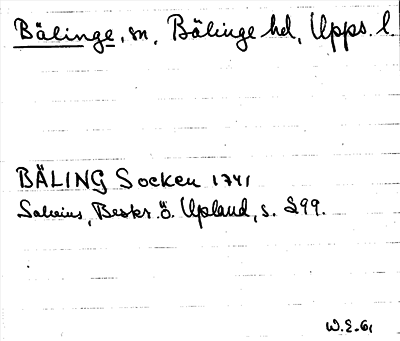 Bälinge, sn, Bälinge hd, Upps. l.
BÄLING Socken 1741
Salvius, Beskr. ö. Upland, s. 299.
W.E. 61